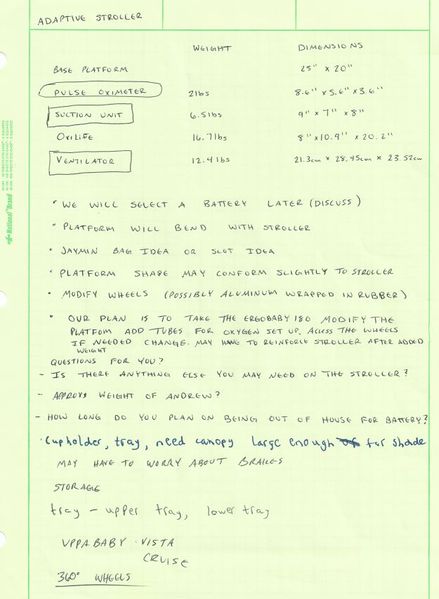 ADAPTIVE STROLLER
WEIGHT DIMENSIONS
BASE PLATFORM 25" x 20"
PULSE OXIMETER 2lbs 8.6" x 5.6" x 3.6"
SUCTION UNIT 6.5lbs 9" x 7" x 8"
OXILIFE 16.7lbs 8" x 10.9" x 20.2"
VENTILATOR 12.4lbs 21.3cm x 28.45cm x 23.52cm
• WE WILL SELECT A BATTERY LATER (DISCUSS)
• PLATFORM WILL BEND WITH STROLLER
• JAYMIN BAG IDEA OR SLOT IDEA
• PLATFORM SHAPE MAY CONFORM SLIGHTLY TO STROLLER
• MODIFY WHEELS (POSSIBLY ALUMINUM WRAPPED IN RUBBER)
• OUR PLAN IS TO TAKE THE ERGOBABY 180 MODIFY THE
PLATFOM ADD TUBES FOR OXYGEN SET UP, ACCESS THE WHEELS
IF NEEDED CHANGE. MAY HAVE TO REINFORCE STROLLER AFTER ADDED
WEIGHT
QUESTIONS FOR YOU?
- IS THERE ANYTHING ELSE YOU MAY NEED ON THE STROLLER?
- APPROX WEIGHT OF ANDREW?
- HOW LONG DO YOU PLAN ON BEING OUT OF HOUSE FOR BATTERY?
• Cupholder, tray, need canopy large enough for shade
MAY HAVE TO WORRY ABOUT BRAKES
STORAGE
tray - upper tray, lower tray
UPPABABY VISTA
CRUISE
360° WHEELS
National Brand